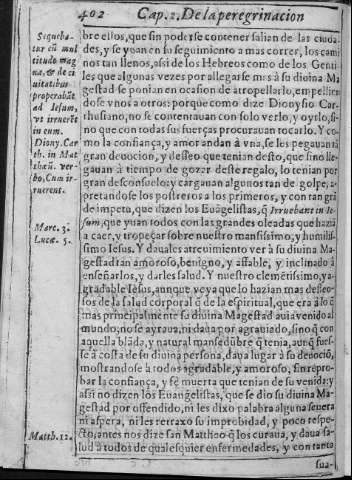 402 Cap. 2. De la peregrinacion
Sequeba-
tur eũ mul
titudo mag
na, & de ci
uitatibus
properabãt
ad Iesum,
vt irruerẽt
in eum.
Diony. Car
th. in Mat
thæũ. ver-
bo, Cum ir-
ruerent.
Marc. 3.
Lucæ. 5.
Matth. 12.
bre ellos, que sin poderse contener salian de las ciuda-
des, y se yuan en su seguimiento a mas correr, los cami
nos tan llenos, assi de los Hebreos como de los Genti
les que algunas vezes por allegarse mas à su diuina Ma
gestad se ponian en ocasion de atropellarlo, empellien
dose vnos a otros: porque como dize Dionysio Car
thusiano, no se contentauan con solo verlo, y oyrlo, si-
no que con todas sus fuerças procurauan tocarlo. Y co-
mo la confiança, y amor andan à vna, se les pegauan tã
gran deuocion, y desseo que tenian desto, que sino lle-
gauan à tiempo de gozar deste regalo, lo tenian por
gran desconsuelo: y cargauan algunos tan de golpe, a-
pretandose los postreros a los primeros, y con tan grã
de impetu, que dizen los Euãgelistas, q̃ Irruebant in Ie-
sum, que yuan todos con las grandes oleadas que hazià
la caer, y tropeçar sobre nuestro mansissimo, y humilis
simo Iesus. Y dauales atreuimiento ver à su diuina Ma
gestad tan amoroso, benigno, y affable, y inclinado à
enseñarlos, y darles salud. Y nuestro clemẽtissimo, y a-
gradable Iesus, aunque veya que lo hazian mas desseo-
sos de la salud corporal q̃ de la espiritual, que era à lo q̃
mas principalmente su diuina Magestad auia venido al
mundo, no se ayraua, ni daua por agrauiado, sino q̃ con
aquella blãda, y natural mansedũbre q̃ tenia, aunq̃ fues-
se à costa de su diuina persona, daua lugar à su deuociõ,
mostrandose à todos agradable, y amoroso, sin repro-
bar la confiança, y fè muerta que tenian de su venida: y
assi no dizen los Euangelistas, que se dio su diuina Ma-
gestad por offendido, ni les dixo palabra alguna seuera
ni aspera, ni les retraxo su improbidad, y poco respe-
cto, antes nos dize san Mattheo q̃ los curaua, y daua sa-
lud à todos de qualesquier enfermedades, y con tanto
sua-